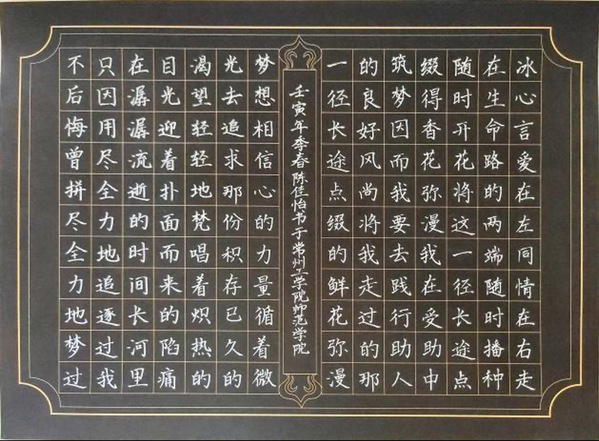 冰心言爱在左同情在右走
在生命路的两端随时播种
随时开花将这一径长途点
缀得香花弥漫我在受助中
筑梦因而我要去践行助人
的良好风尚将我走过的那
一径长途点缀的鲜花弥漫
壬寅年季春陈佳怡书于常州工学院师范学院
梦想相信心的力量循着微
光去追求那份积存已久的
渴望轻轻地梵唱着炽热的
目光迎着扑面而来的陷痛
在潺潺流逝的时间长河里
只因用尽全力地追逐过我
不后悔曾拼尽全力地梦过